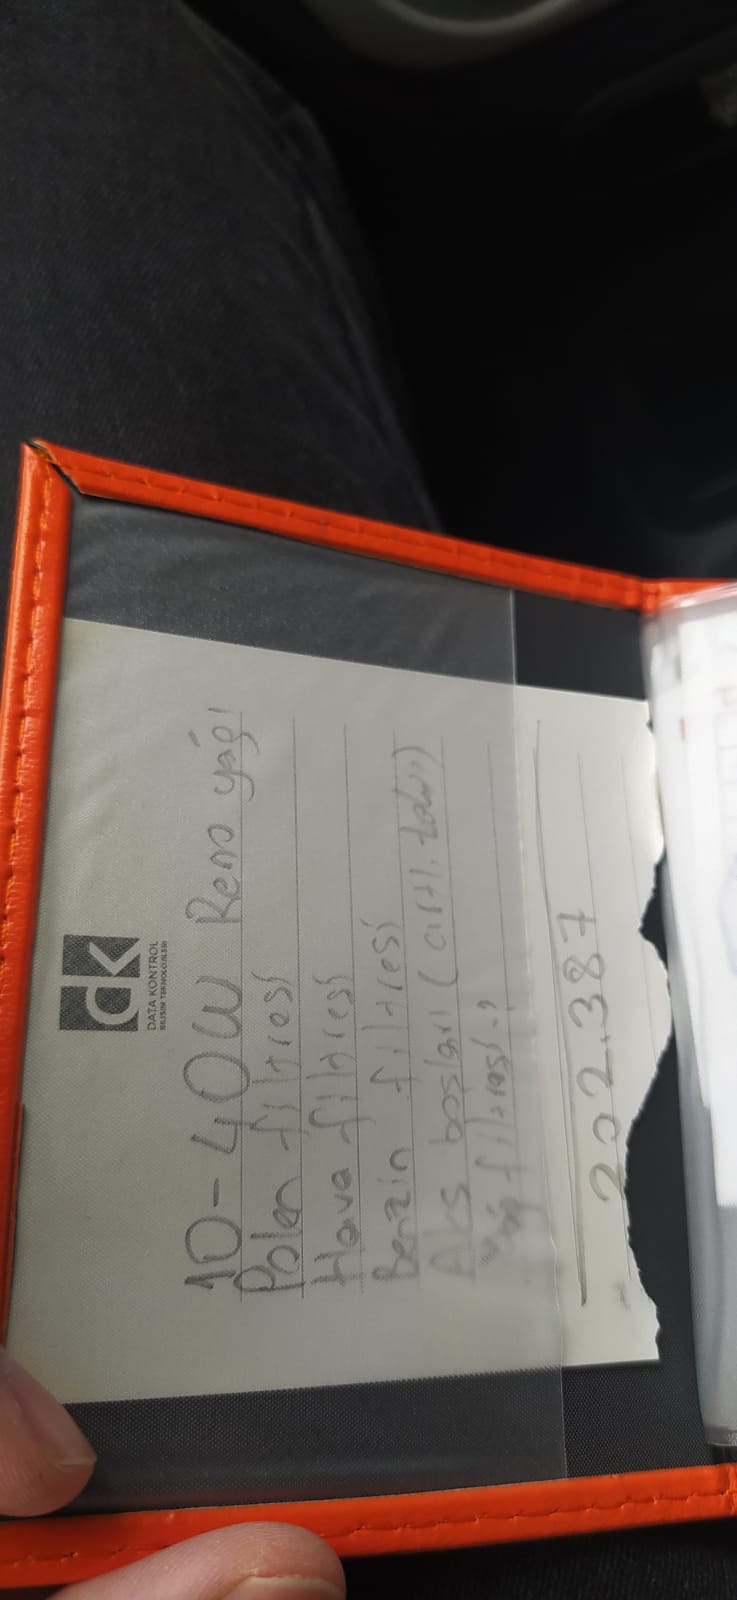 dk
DATA KONTROL
BİLİŞİM TEKNOLOJİLERİ
10-40W Reno yağı
Polen filtresi
Hava filtresi
Benzin filtresi
Aks başları (
yağ filtresi
202.387